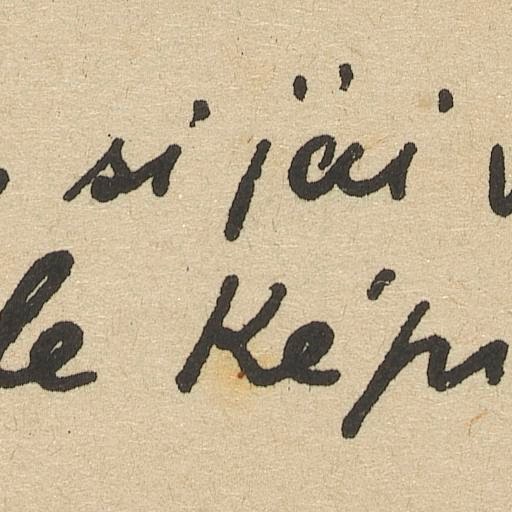 si j'ai
le Képi